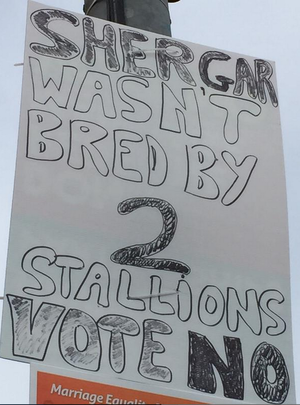 SHERGAR
WASN'T
BRED BY
2
STALLIONS
VOTE NO
Marriage